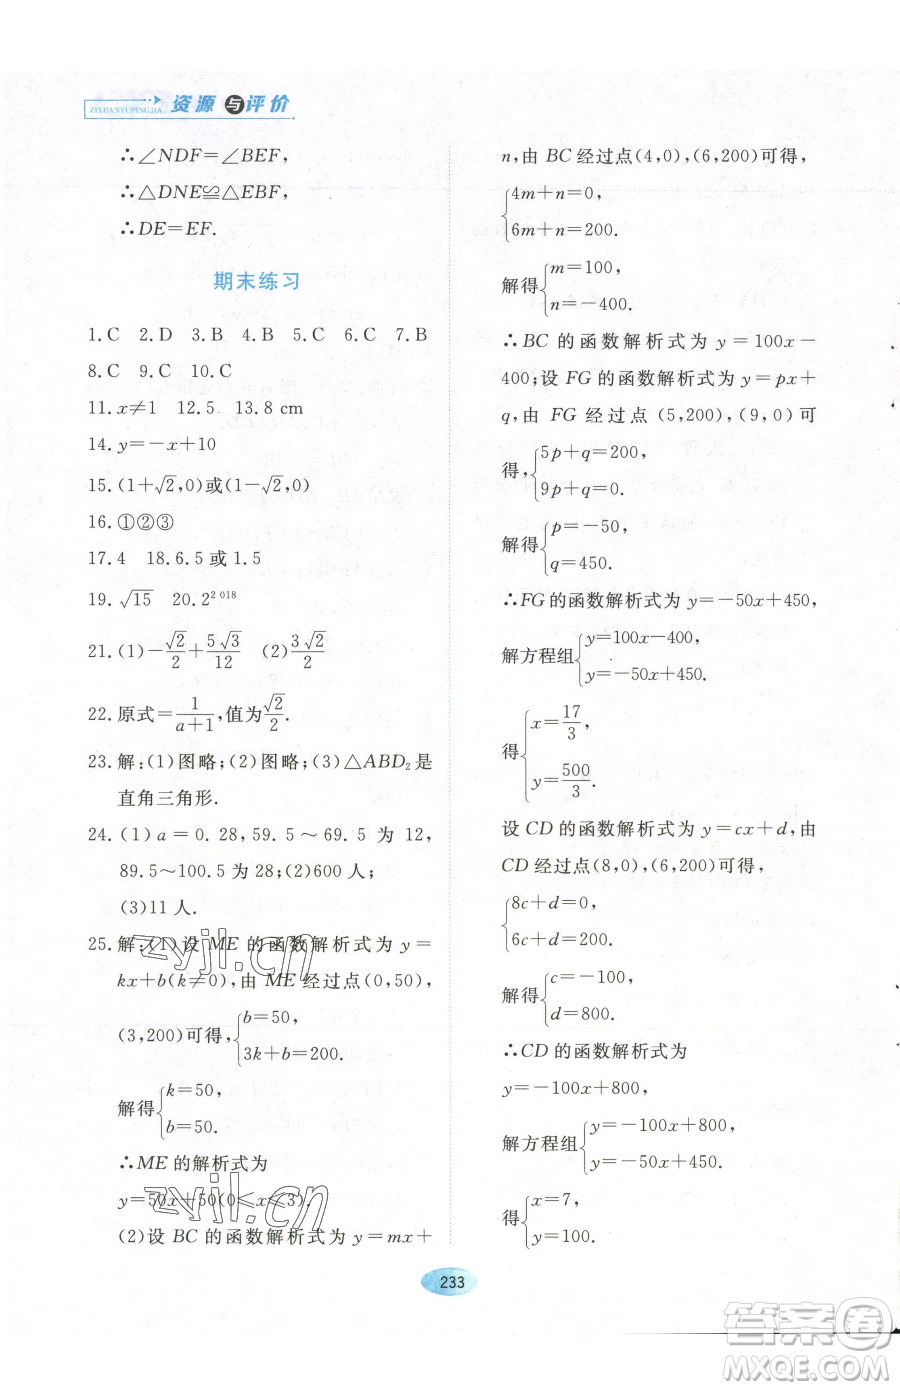 资源与评价
ZIYUANYUPINGJIA
∴∠NDF=∠BEF,
∴△DNE≌△EBF,
∴DE=EF.
期末练习
1.C 2.D 3.B 4.B 5.C 6.C 7.B
8.C 9.C 10.C
11.x≠1 12.5 13.8 cm
14.y=-x+10
15.(1+√2,0)或(1-√2,0)
16.①②③
17.4 18.6.5 或 1.5
19.√15 20.2^2 018
21.(1)-√2/2+5√3/12 (2)3√2/2
22.原式=1/(a+1),值为√2/2.
23.解:(1)图略;(2)图略;(3)△ABD₂是
直角三角形.
24.(1)a=0.28,59.5~69.5 为 12,
89.5~100.5 为 28;(2)600 人;
(3)11 人.
25.解:(1)设 ME 的函数解析式为 y=
kx+b(k≠0),由 ME 经过点(0,50),
(3,200)可得,{b=50,
3k+b=200.
解得{k=50,
b=50.
∴ME 的解析式为
y=50x+50(0≤x≤3).
(2)设 BC 的函数解析式为 y=mx+
n,由 BC 经过点(4,0),(6,200)可得,
{4m+n=0,
6m+n=200.
解得{m=100,
n=-400.
∴BC 的函数解析式为 y=100x-
400;设 FG 的函数解析式为 y=px+
q,由 FG 经过点(5,200),(9,0)可
得,{5p+q=200,
9p+q=0.
解得{p=-50,
q=450.
∴FG的函数解析式为y=-50x+450,
解方程组{y=100x-400,
y=-50x+450.
得{x=17/3,
y=500/3.
设 CD 的函数解析式为 y=cx+d,由
CD 经过点(8,0),(6,200)可得,
{8c+d=0,
6c+d=200.
解得{c=-100,
d=800.
∴CD 的函数解析式为
y=-100x+800,
解方程组{y=-100x+800,
y=-50x+450.
得{x=7,
y=100.
233
zyjl.cn
zyjl.cn
答案圈
MXQE.COM